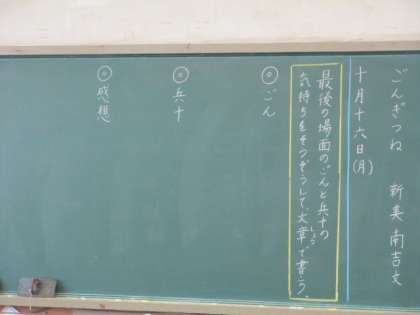 ごんぎつね 新美 南吉文
十月十六日(月)
最後の場面のごんと兵十の
気持ちをそうぞうして、文章で書こう。
◎ごん
◎兵十
◎感想